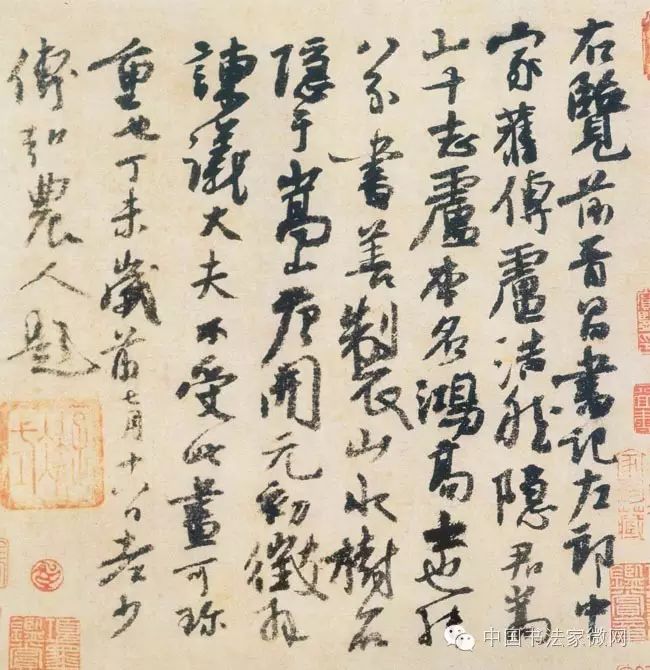 右覽前晉昌書記左郎中
家舊傳盧浩然隱居嵩
山十志盧本名鴻高士也能
八分書善製山水樹石
隱于嵩山唐開元初徵拜
諫議大夫不受此畫可珍
重也丁未歲前七月十八日老少
傅弘農人題
中国书法家微网